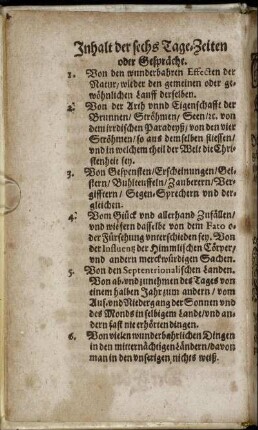 Inhalt der sechs Tage-Zeiten
oder Gespräche.
1. Von den wunderbahren Effecten der
Natur/ wieder den gemeinen oder ge-
wöhnlichen Lauff derselben.
2. Von der Arth vnnd Eigenschafft der
Brunnen/ Ströhmen/ Seen/ ꝛc. von
dem irrdischen Paradeyß/ von den vier
Ströhmen/ so aus demselben fliessen/
vnd in welchem theil der Welt die Chri-
stenheit sey.
3. Von Gespensten/ Erscheinungen/ Gei-
stern/ Buhlteuffeln/ Zauberern/ Ver-
gifftern/ Segen-Sprechern vnd der-
gleichen.
4. Vom Glück vnd allerhand Zufällen/
vnd wiefern dasselbe von dem Fato o-
der Fürsehung vnterschieden sey. Von
der Influenz der Himmlischen Cörper/
vnd andern merckwürdigen Sachen.
5. Von den Septentrionalischen Landen.
Von ab-vnd zunehmen des Tages von
einem halben Jahr zum andern/ vom
Auf-vnd Niedergang der Sonnen vnd
des Monds in selbigem Lande/ vnd an-
dern fast nie erhörten dingen.
6. Von vielen wunderbahrlichen Dingen
in den mitternächtigen Ländern/ davon
man in den vnserigen nichts weiß.